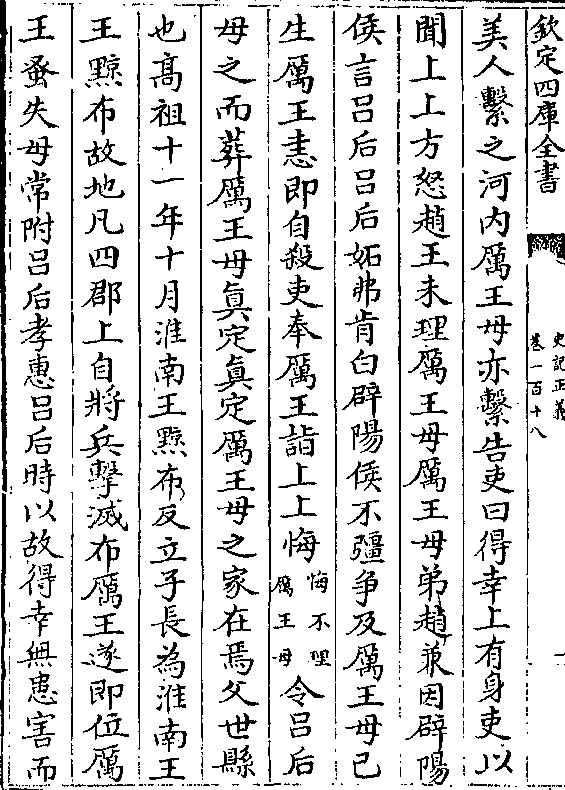 欽定四庫全書
史記正義
卷一百十八
一
美人繫之河内厲王母亦繫告吏曰得幸上有身吏以
聞上上方怒趙王未理厲王母厲王母弟趙兼因辟陽
侯言吕后吕后妬弗肯白辟陽侯不彊争及厲王母已
生厲王恚即自殺吏奉厲王詣上上悔悔不理厲王母令吕后
母之而葬厲王母真定真定厲王母之家在焉父世縣
也高祖十一年十月淮南王黥布反立子長為淮南王
王黥布故地凡四郡上自將兵擊滅布厲王遂即位厲
王蚤失母常附吕后孝惠吕后時以故得幸無患害而